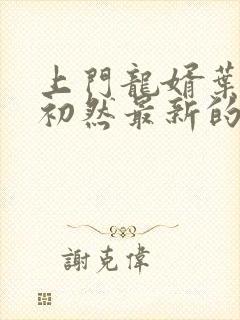 上門龍婿葉
初然最新的
謝克偉